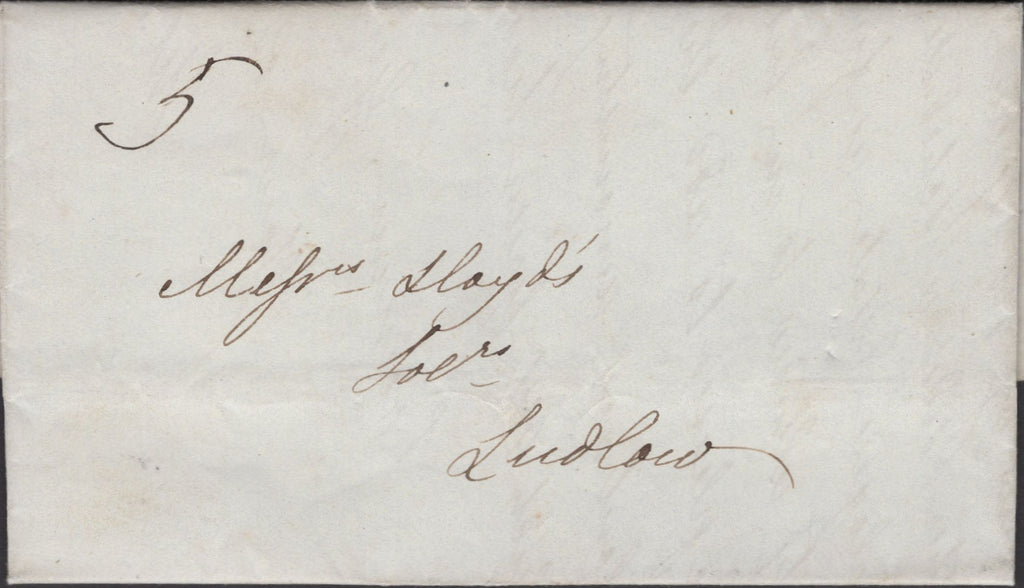 5
Messrs Lloyd's
Solrs
Ludlow